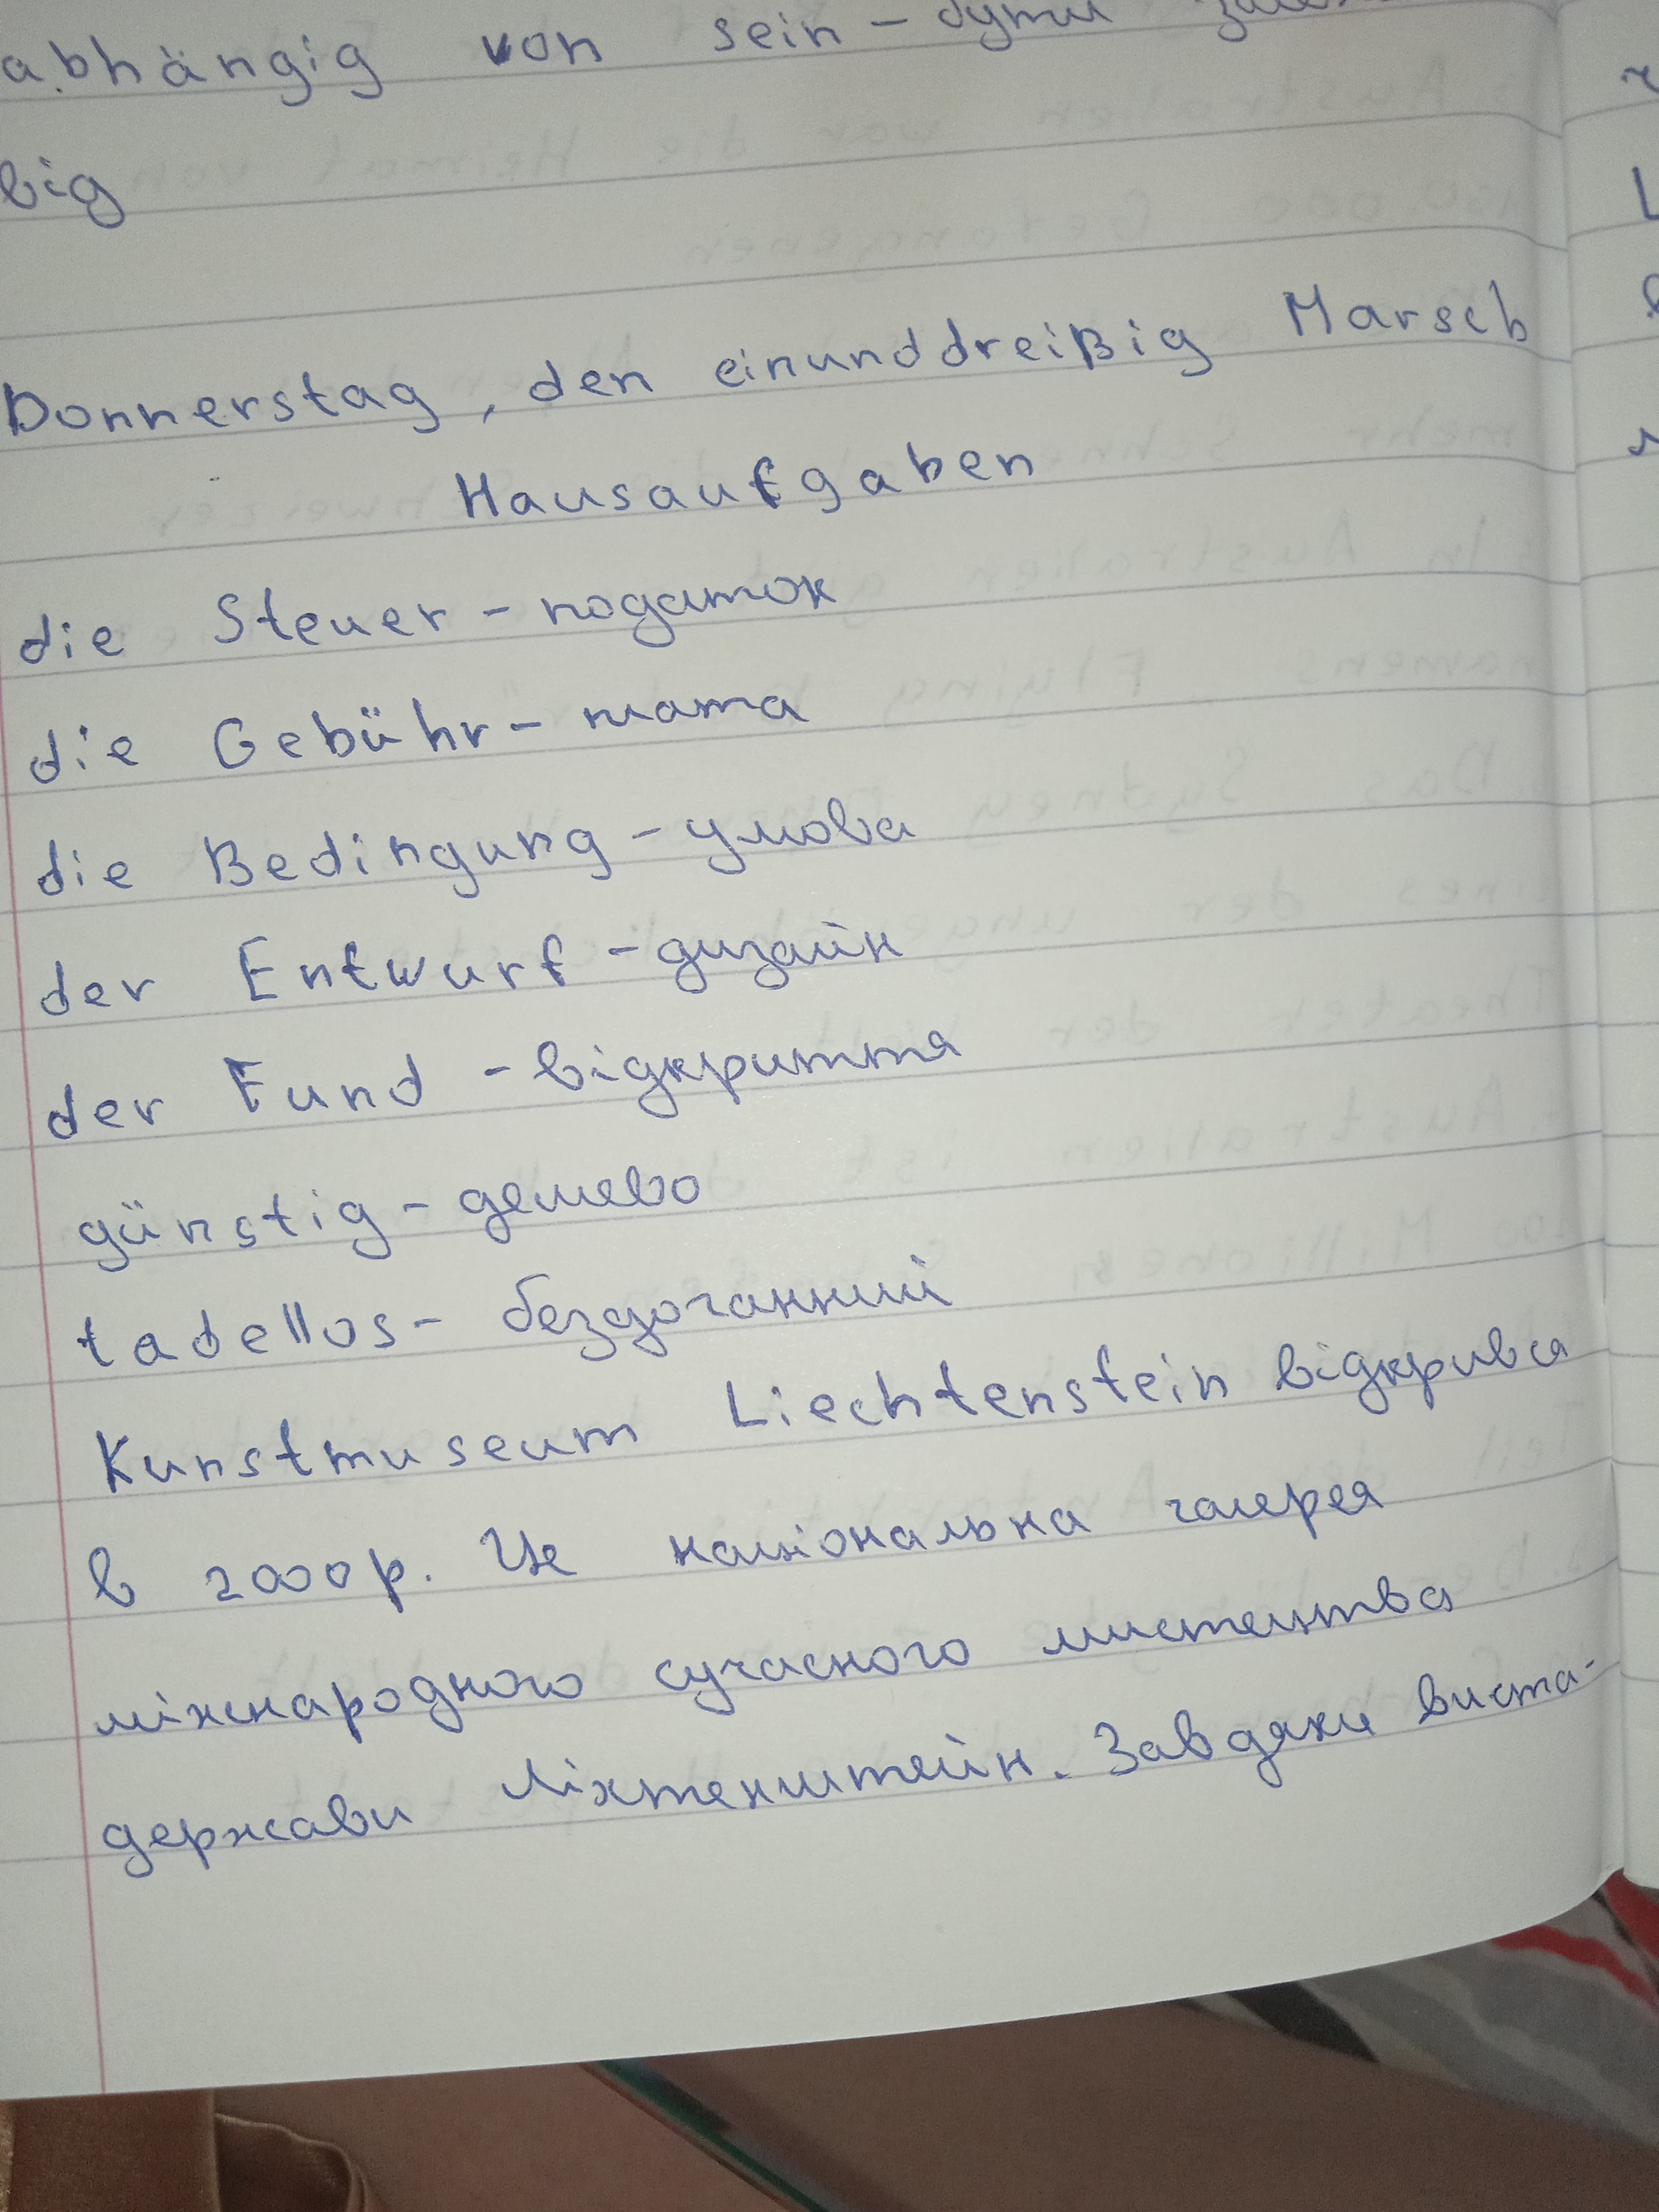 abhängig von sein - бути
від
Donnerstag, den einunddreißig Marsch
Hausaufgaben
die Steuer - податок
die Gebühr - плата
die Bedingung - умова
der Entwurf - дизайн
der Fund - відкриття
günstig - дешево
tadellos - бездоганний
Kunstmuseum Liechtenstein відкрився
в 2000р. Це національна галерея
міжнародного сучасного мистецтва
держави Ліхтенштейн. Завдяки виста-